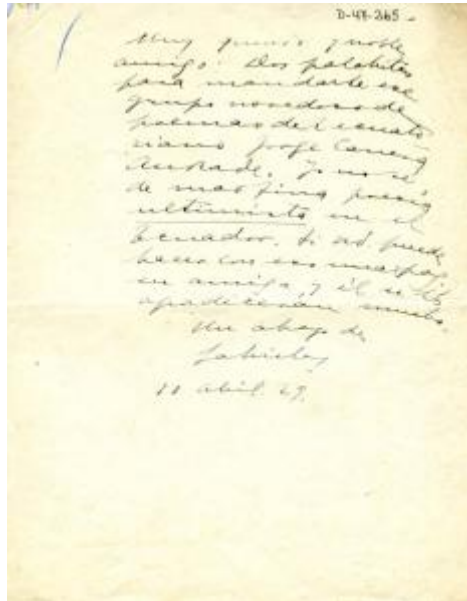 D-47-265-
Muy querido y noble
amigo: Dos palabritas
para mandarte ese
grupo novedoso de
poemas del ecuato
riano Jorge Carrera
Andrade. Yo no sé
de mas fina poesía
ultimista en el
Ecuador. Si
hace con eso una
un amigo, y él
agradeceran mucho.
Un abrazo de
11 abril 29.